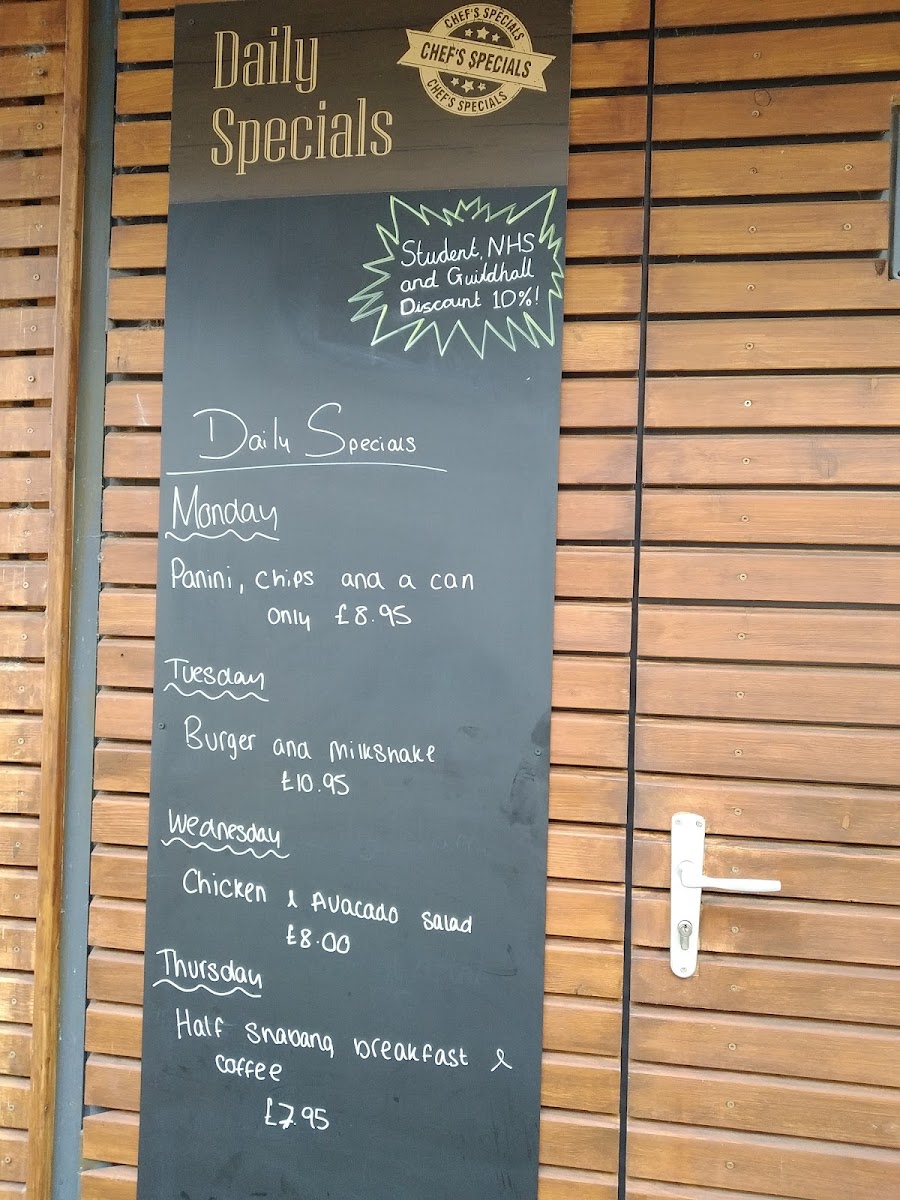 Daily
Specials
CHEF'S SPECIALS
CHEF'S SPECIALS
CHEF'S SPECIALS
Student, NHS
and Guildhall
Discount 10%!
Daily Specials
Monday
Panini, chips and a can
only £8.95
Tuesday
Burger and milkshake
£10.95
Wednesday
Chicken & Avacado salad
£8.00
Thursday
Half Shabang breakfast &
coffee
£7.95